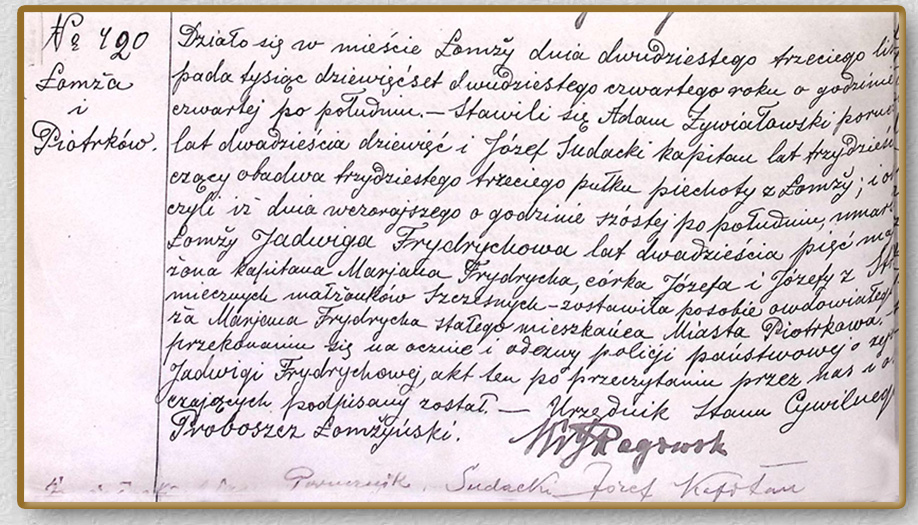 № 420
Łomża
i
Piotrków.
Działo się w mieście Łomży dnia dwudziestego trzeciego lis
pada tysiąc dziewięćset dwudziestego czwartego roku o godzinie
czwartej po południu. — Stawili się Adam Żywiałowski poru
lat dwadzieścia dziewięć i Józef Sudacki kapitan lat trzydzieś
czący obadwa trzydziestego trzeciego pułku piechoty z Łomży; i oś
czyli iż dnia wczorajszego o godzinie szóstej po południu, umar
Łomży Jadwiga Frydrychowa lat dwadzieścia pięć ma
żona kapitana Marjana Frydrycha, córka Józefa i Józefy z
miecznych małżonków Szczesnych – zostawiła po sobie owdowiałego
ża Marjana Frydrycha stałego mieszkańca Miasta Piotrkowa. –
przekonaniu się na ocznie i odezwy policji państwowej o zej
Jadwigi Frydrychowej, akt ten po przeczytaniu przez nas i o
czających podpisany został. — Urzędnik Stanu Cywilneg
Proboszcz Łomżyński.
Rogowsk
Porucznik. Sudacki Józef Kapitan